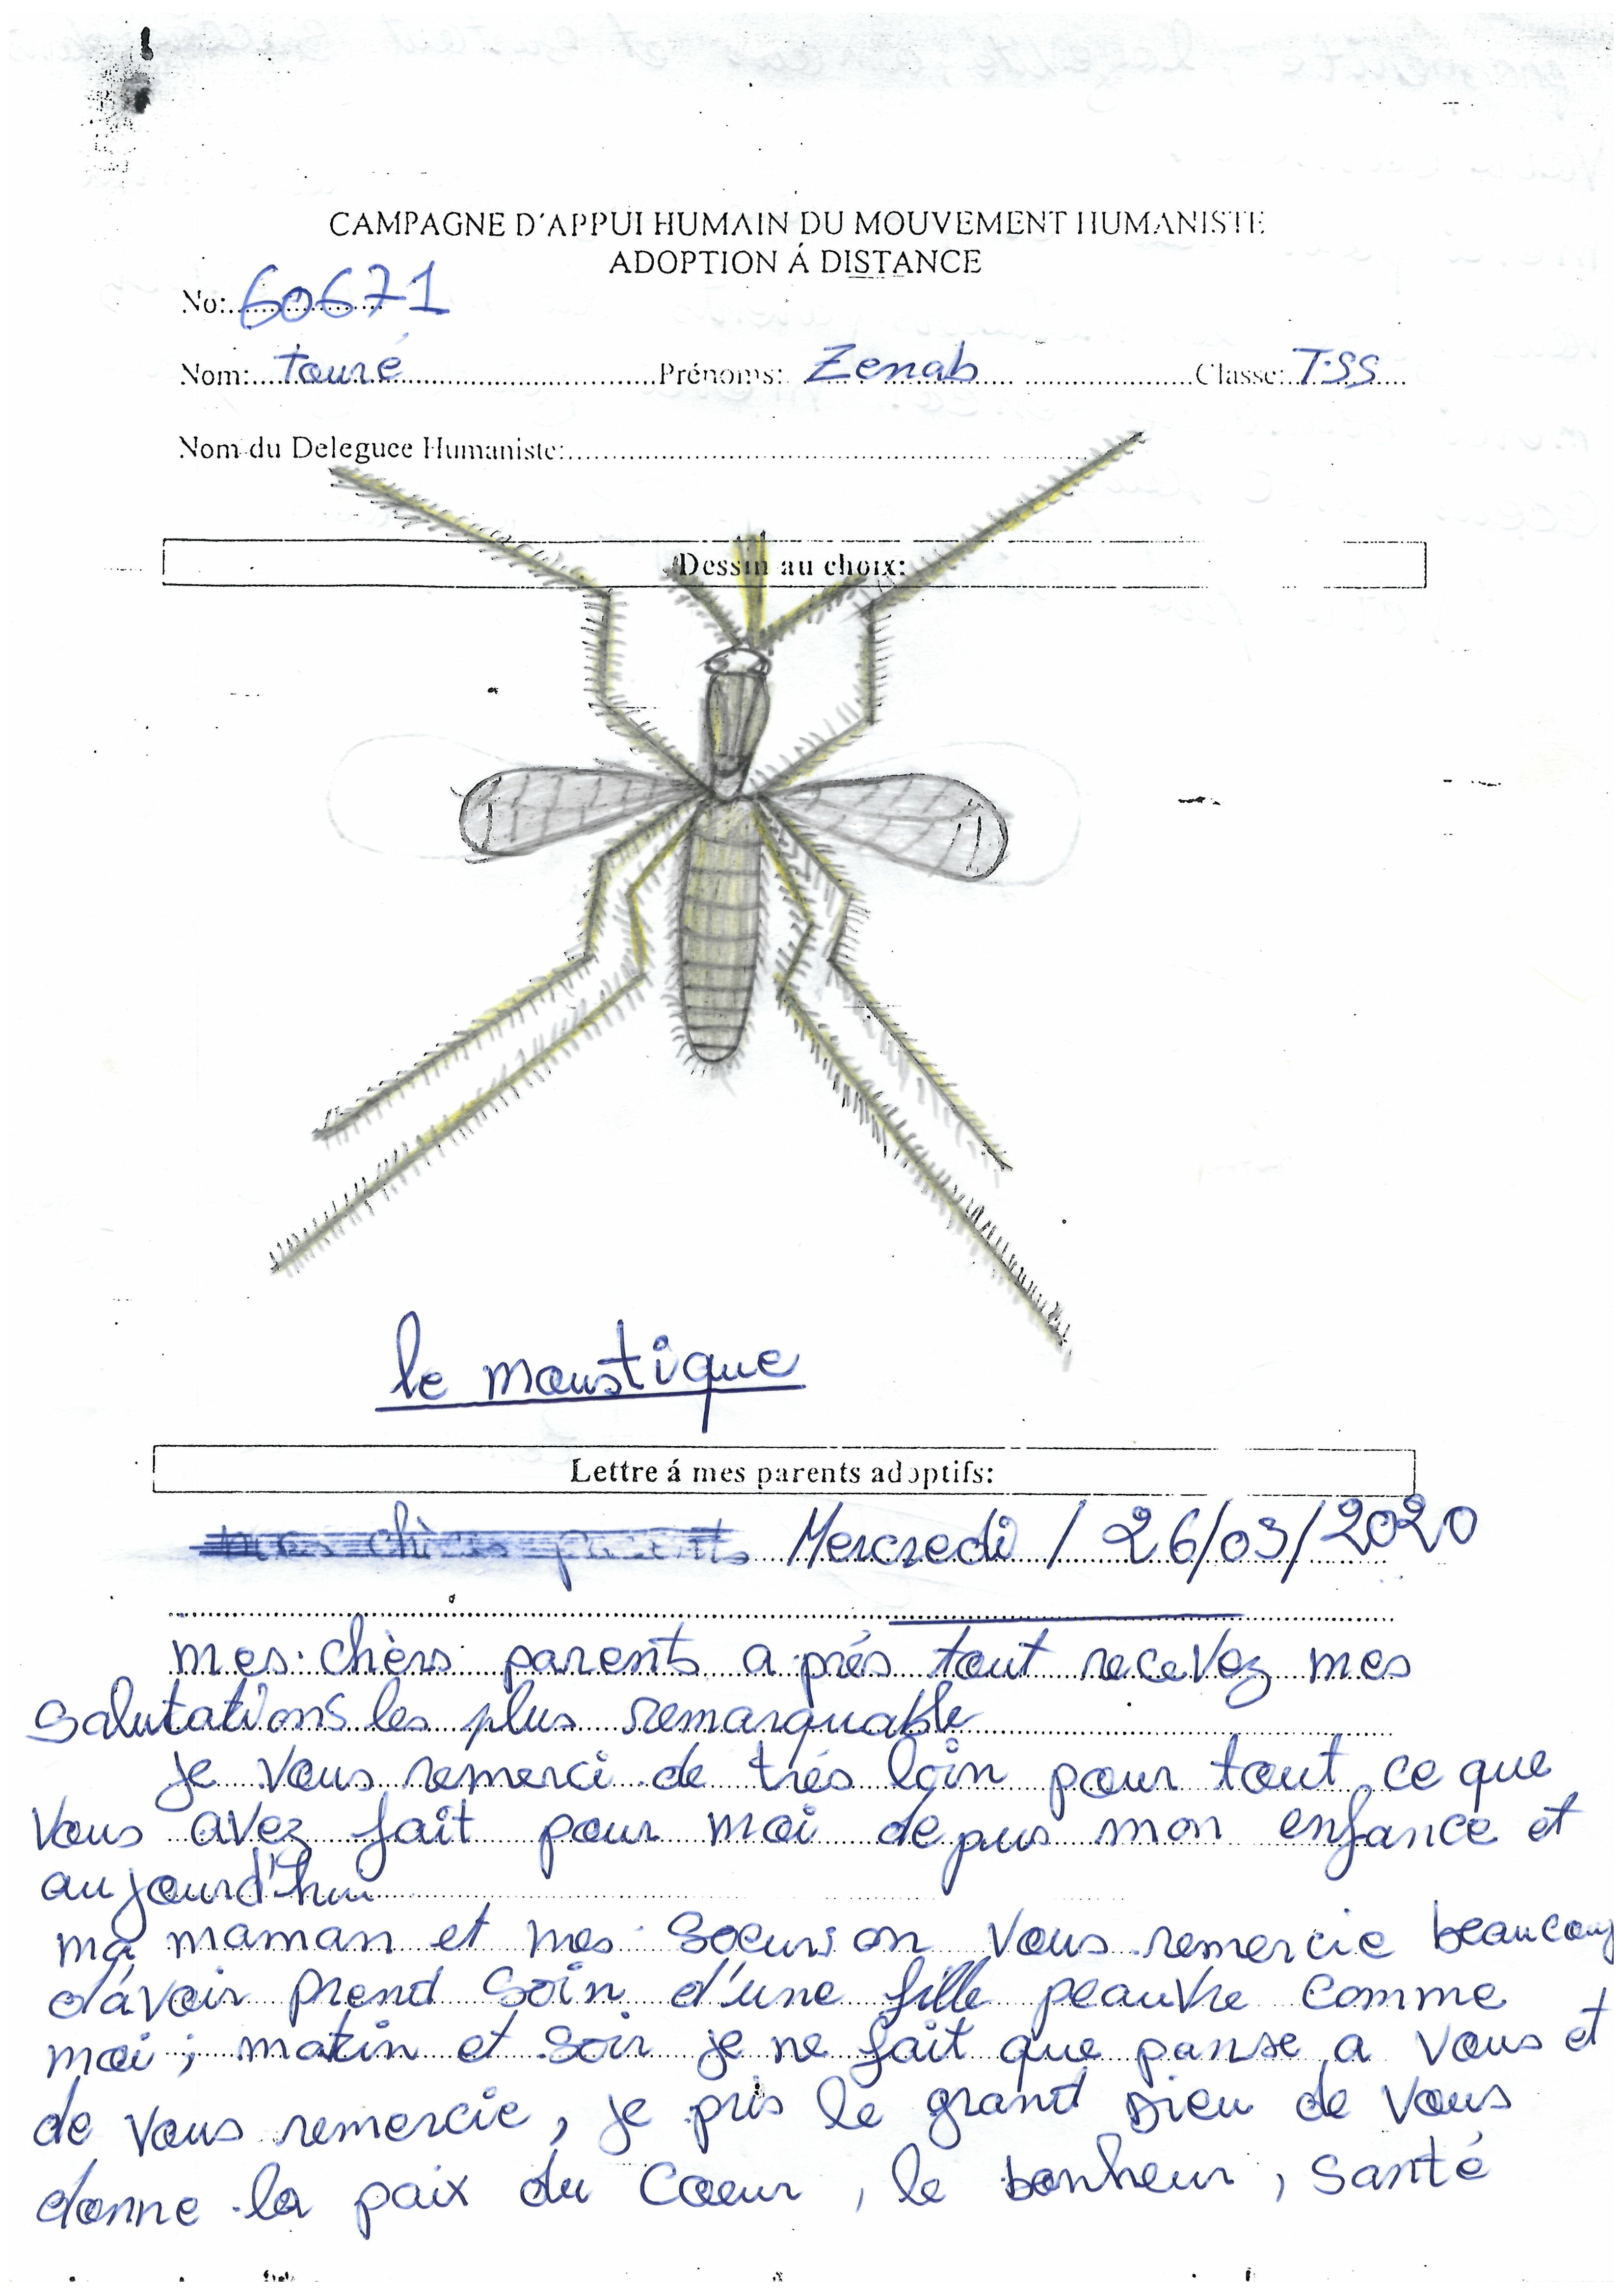 CAMPAGNE D'APPUI HUMAIN DU MOUVEMENT HUMANISTE
ADOPTION Á DISTANCE
No: 60671
Nom: Touré Prénoms: Zenab Classe: T.SS
Nom du Deleguee Humaniste:
Dessin au choix:
le moustique
Lettre á mes parents adoptifs:
mes chèrs parents Mercredi / 26/03/2020
mes chèrs parents a prés tout recevez mes
Salutations les plus remarquable
je vous remerci de trés loin pour tout ce que
vous avez fait pour moi depus mon enfance et
aujourd'hui
ma maman et mes soeurs on vous remercie beaucoup
d'avoir prend soin d'une fille peauvre comme
moi ; matin et soir je ne fait que panse a vous et
de vous remercie, je pris le grand Dieu de vous
donne la paix du Coeur, le bonheur, santé